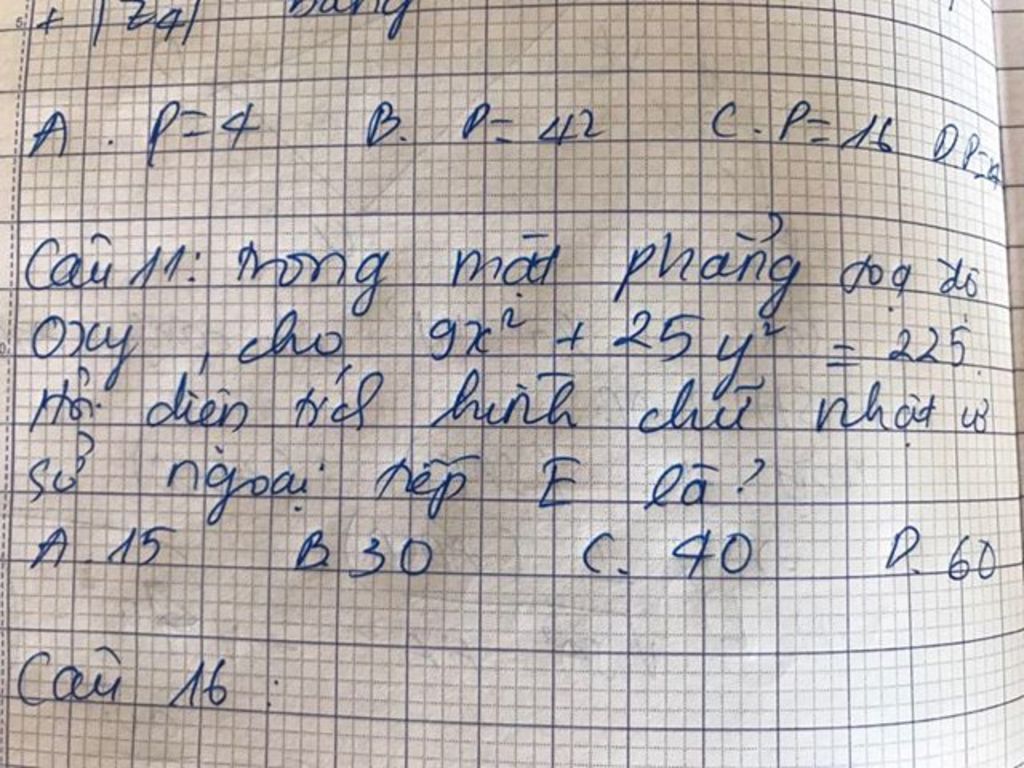 + |z4| bằng
A. P=4 B. P=42 C. P=16 D P=
Câu 11: trong mặt phẳng tọa độ
Oxy, cho 9x² + 25y² = 225.
Hỏi diện tích hình chữ nhật cơ
sở ngoại tiếp E là?
A. 15 B. 30 C. 40 D. 60
Câu 16: